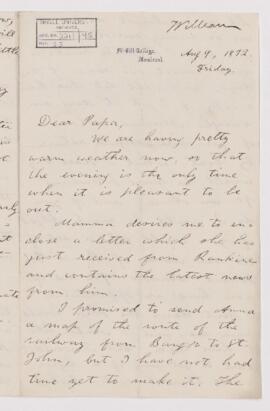 William
McGill College,
Montreal.
Aug 9, 1872
Friday.
Dear Papa,
We are having pretty
warm weather now, so that
the evening is the only time
when it is pleasant to be
out.
Mamma desires me to en-
close a letter which she has
just received from Rankine
and contains the latest news
from him.
I promised to send Anna
a map of the route of the
railway from Bangor to St.
John, but I have not had
time yet to make it. The